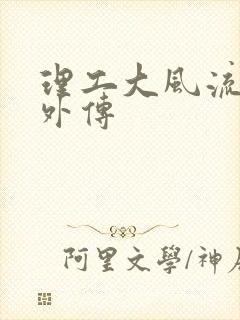 理工大風流
外傳
阿里文學/神居